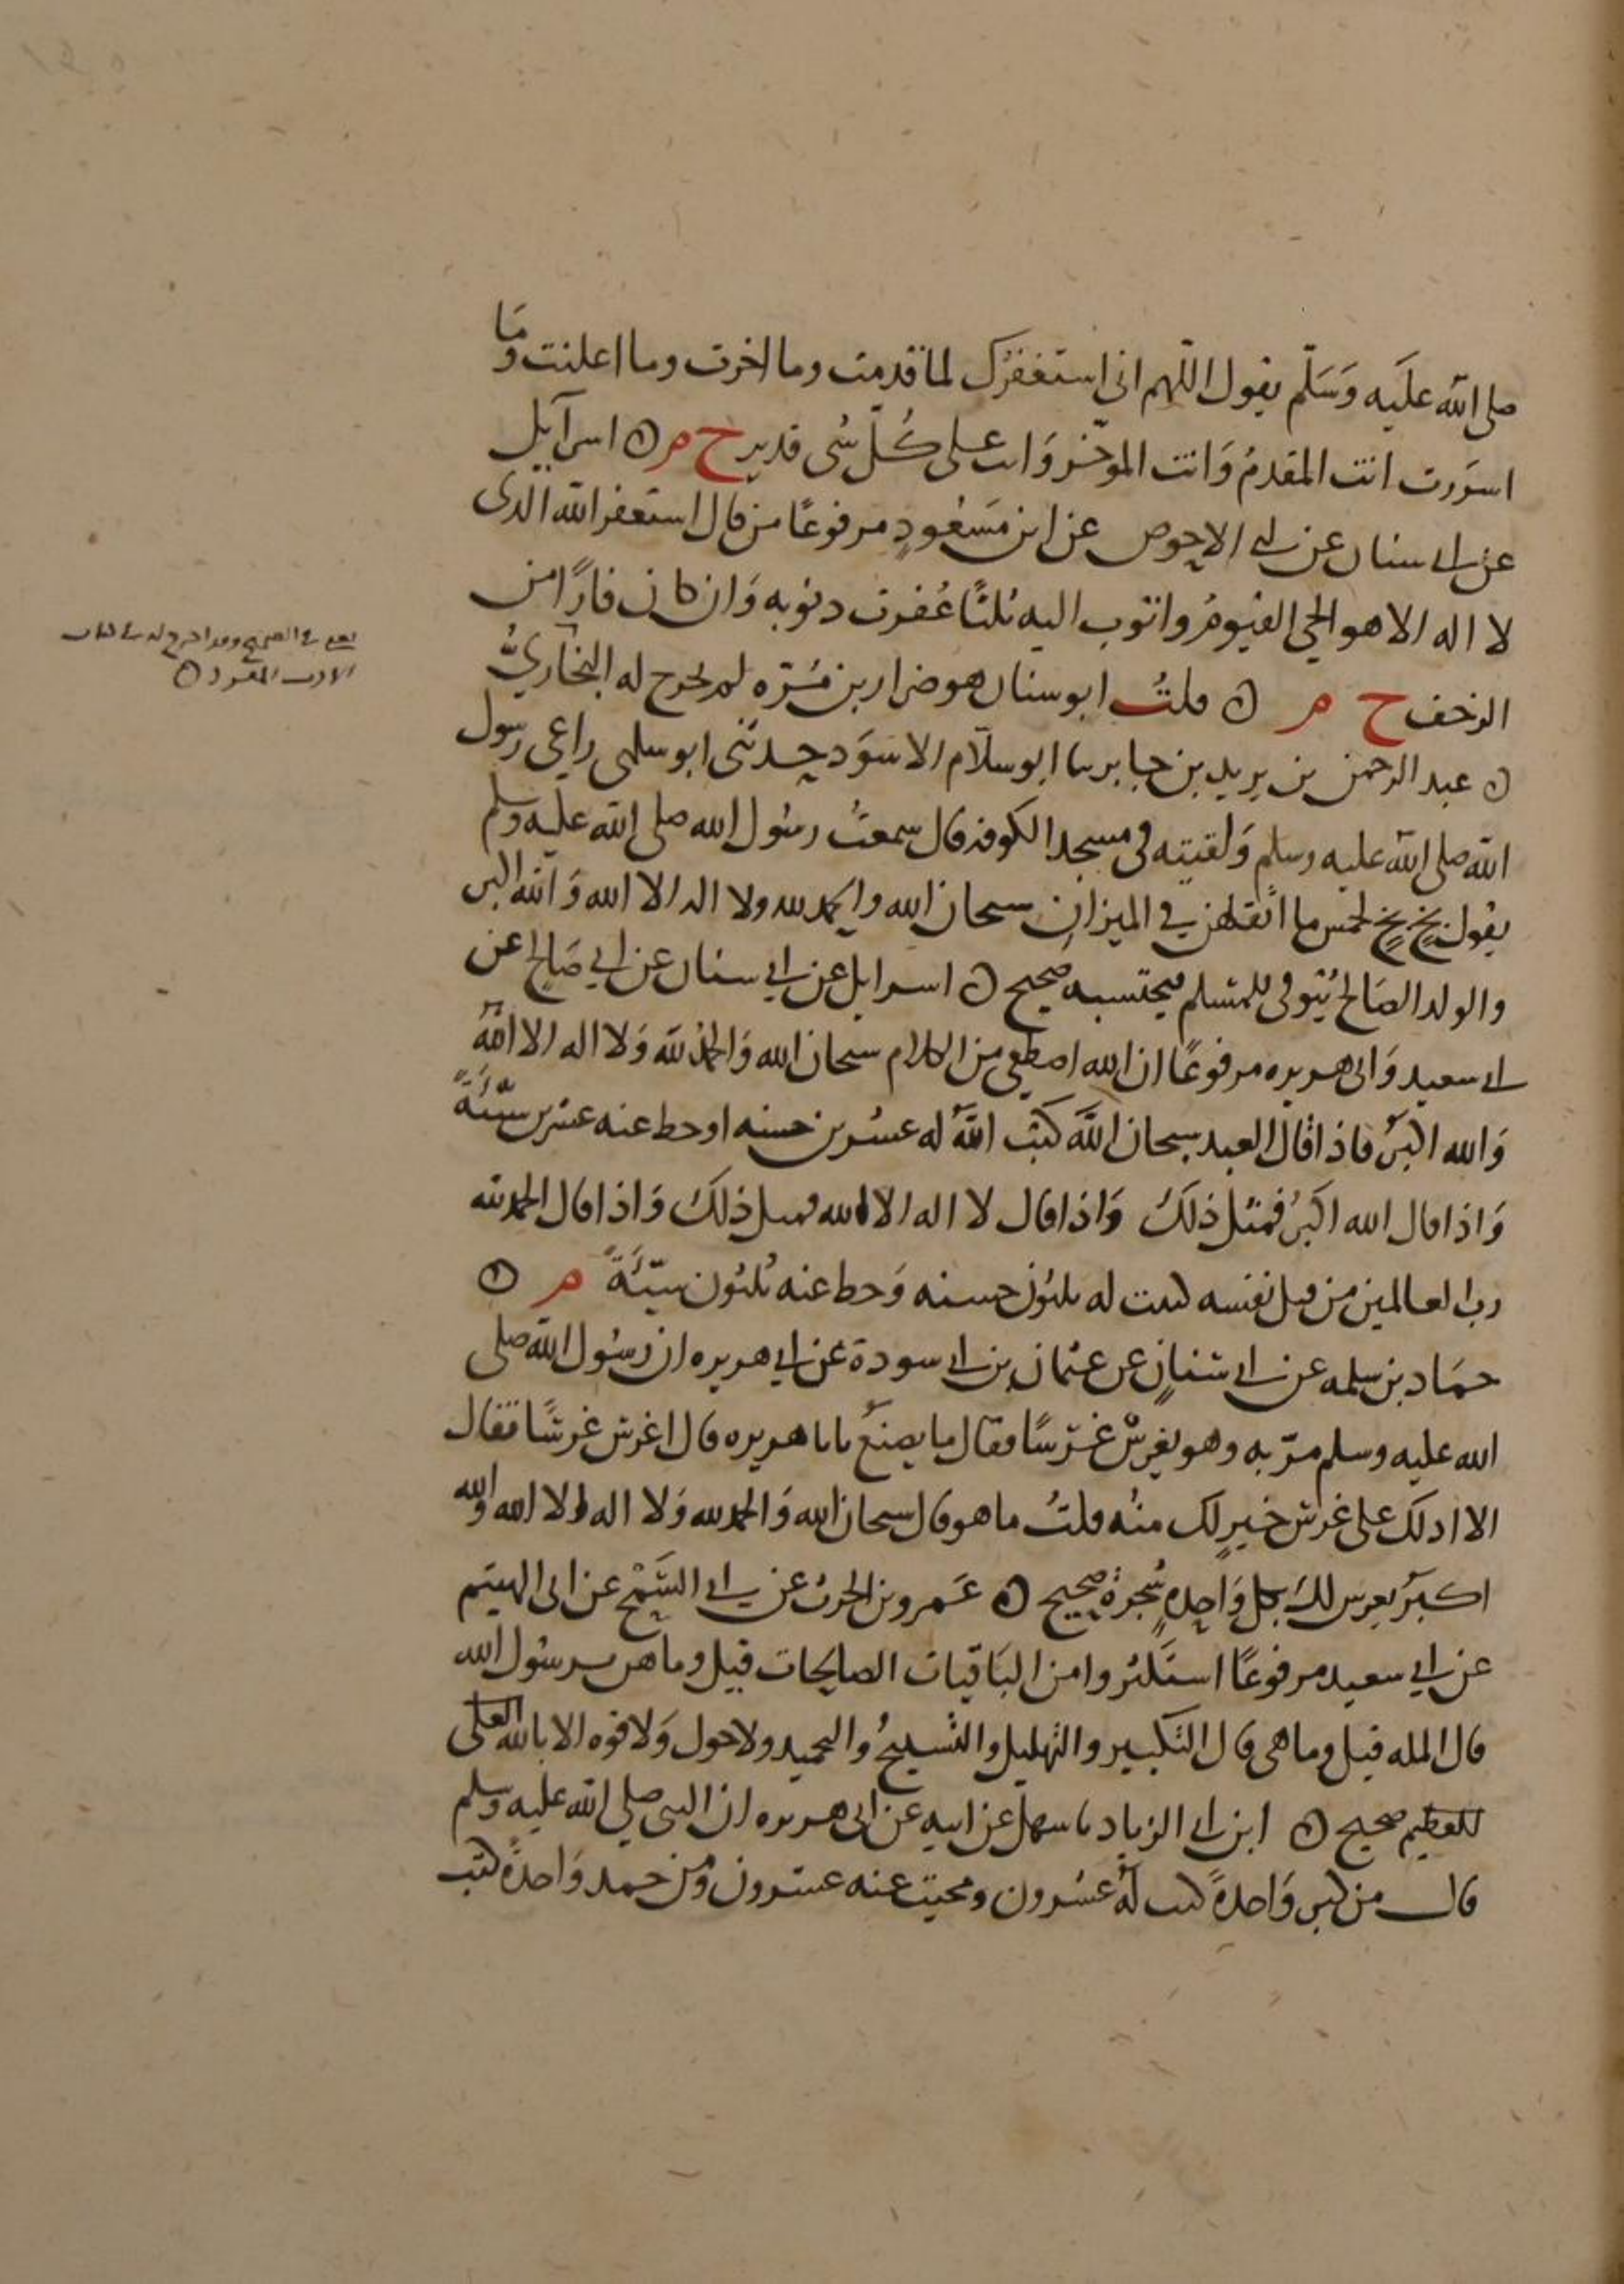 صلى الله عليه وسلم يقول اللهم انى استغفرك لما قدمت وما اخرت وما اعلنت وما
اسررت انت المقدم وانت الموخر وانت على كل شى قدير خ م ۞ اسرآيل
عن ابى سنان عن ابى الاحوص عن ابن مسعود مرفوعًا من قال استغفر الله الذى
لا اله الا هو الحي القيوم واتوب اليه ثلثًا غفرت ذنوبه وان كان فارًا من
الزحف خ م ۞ قلتُ ابو سنان هو ضرار بن مُرّه لم يخرج له البخاريُّ
يعنى فى الصحيح وقد اخرج له فى كتاب
الادب المفرد ۞
۞ عبد الرحمن بن يزيد بن جابر سا ابو سلام الاسود حدثنى ابو سلمى راعى رسول
الله صلى الله عليه وسلم ولقيته فى مسجد الكوفه قال سمعتُ رسول الله صلى الله عليه وسلم
يقول بخٍ بخٍ لخمس ما اثقلهن في الميزان سبحان الله والحمد لله ولا اله الا الله والله اكبر
والولد الصالح يُتوفى للمسلم فيحتسبه صحيح ۞ اسرايل عن ابي سنان عن ابي صالح عن
ابى سعيد وابى هريره مرفوعًا ان الله اصطفى من الكلام سبحان الله والحمد لله ولا اله الا الله
والله اكبر فاذا قال العبد سبحان الله كتب الله له عشرين حسنه او حط عنه عشرين سيّئَةً
واذا قال الله اكبر فمثل ذلك واذا قال لا اله الا الله فمثل ذلك واذا قال الحمد لله
رب العالمين من قبل نفسه كتبت له ثلثون حسنه وحط عنه ثلثون سيّئَةً م ۞
حماد بن سلمه عن ابى سنانٍ عن عثمان بن ابى سودة عن ابي هريره ان رسول الله صلى
الله عليه وسلم مرّ به وهو يغرس غرسًا فقال ما يصنعُ يابا هريره قال اغرس غرسًا فقال
الا ادلك على غرس خيرٍ لك منه قلتُ ما هو قال سبحان الله والحمد لله ولا اله الا الله والله
اكبر يغرس لك بكل واحدهٍ شجرة صحيح ۞ عمرو بن الحرث عن ابى السمح عن ابى الهيثم
عن ابي سعيد مرفوعًا استكثروا من الباقيات الصالحات قيل وما هن يرسول الله
قال المله قيل وما هى قال التكبير والتهليل والتسبيحُ والتحميد ولا حول ولا قوه الا بالله العلى
العظيم صحيح ۞ ابن ابى الزناد سا سهل عن ابيه عن ابى هريره ان النبى صلى الله عليه وسلم
قال من كبر واحدةً كتب له عشرون ومحيت عنه عشرون ومن حمد واحدةً كتب